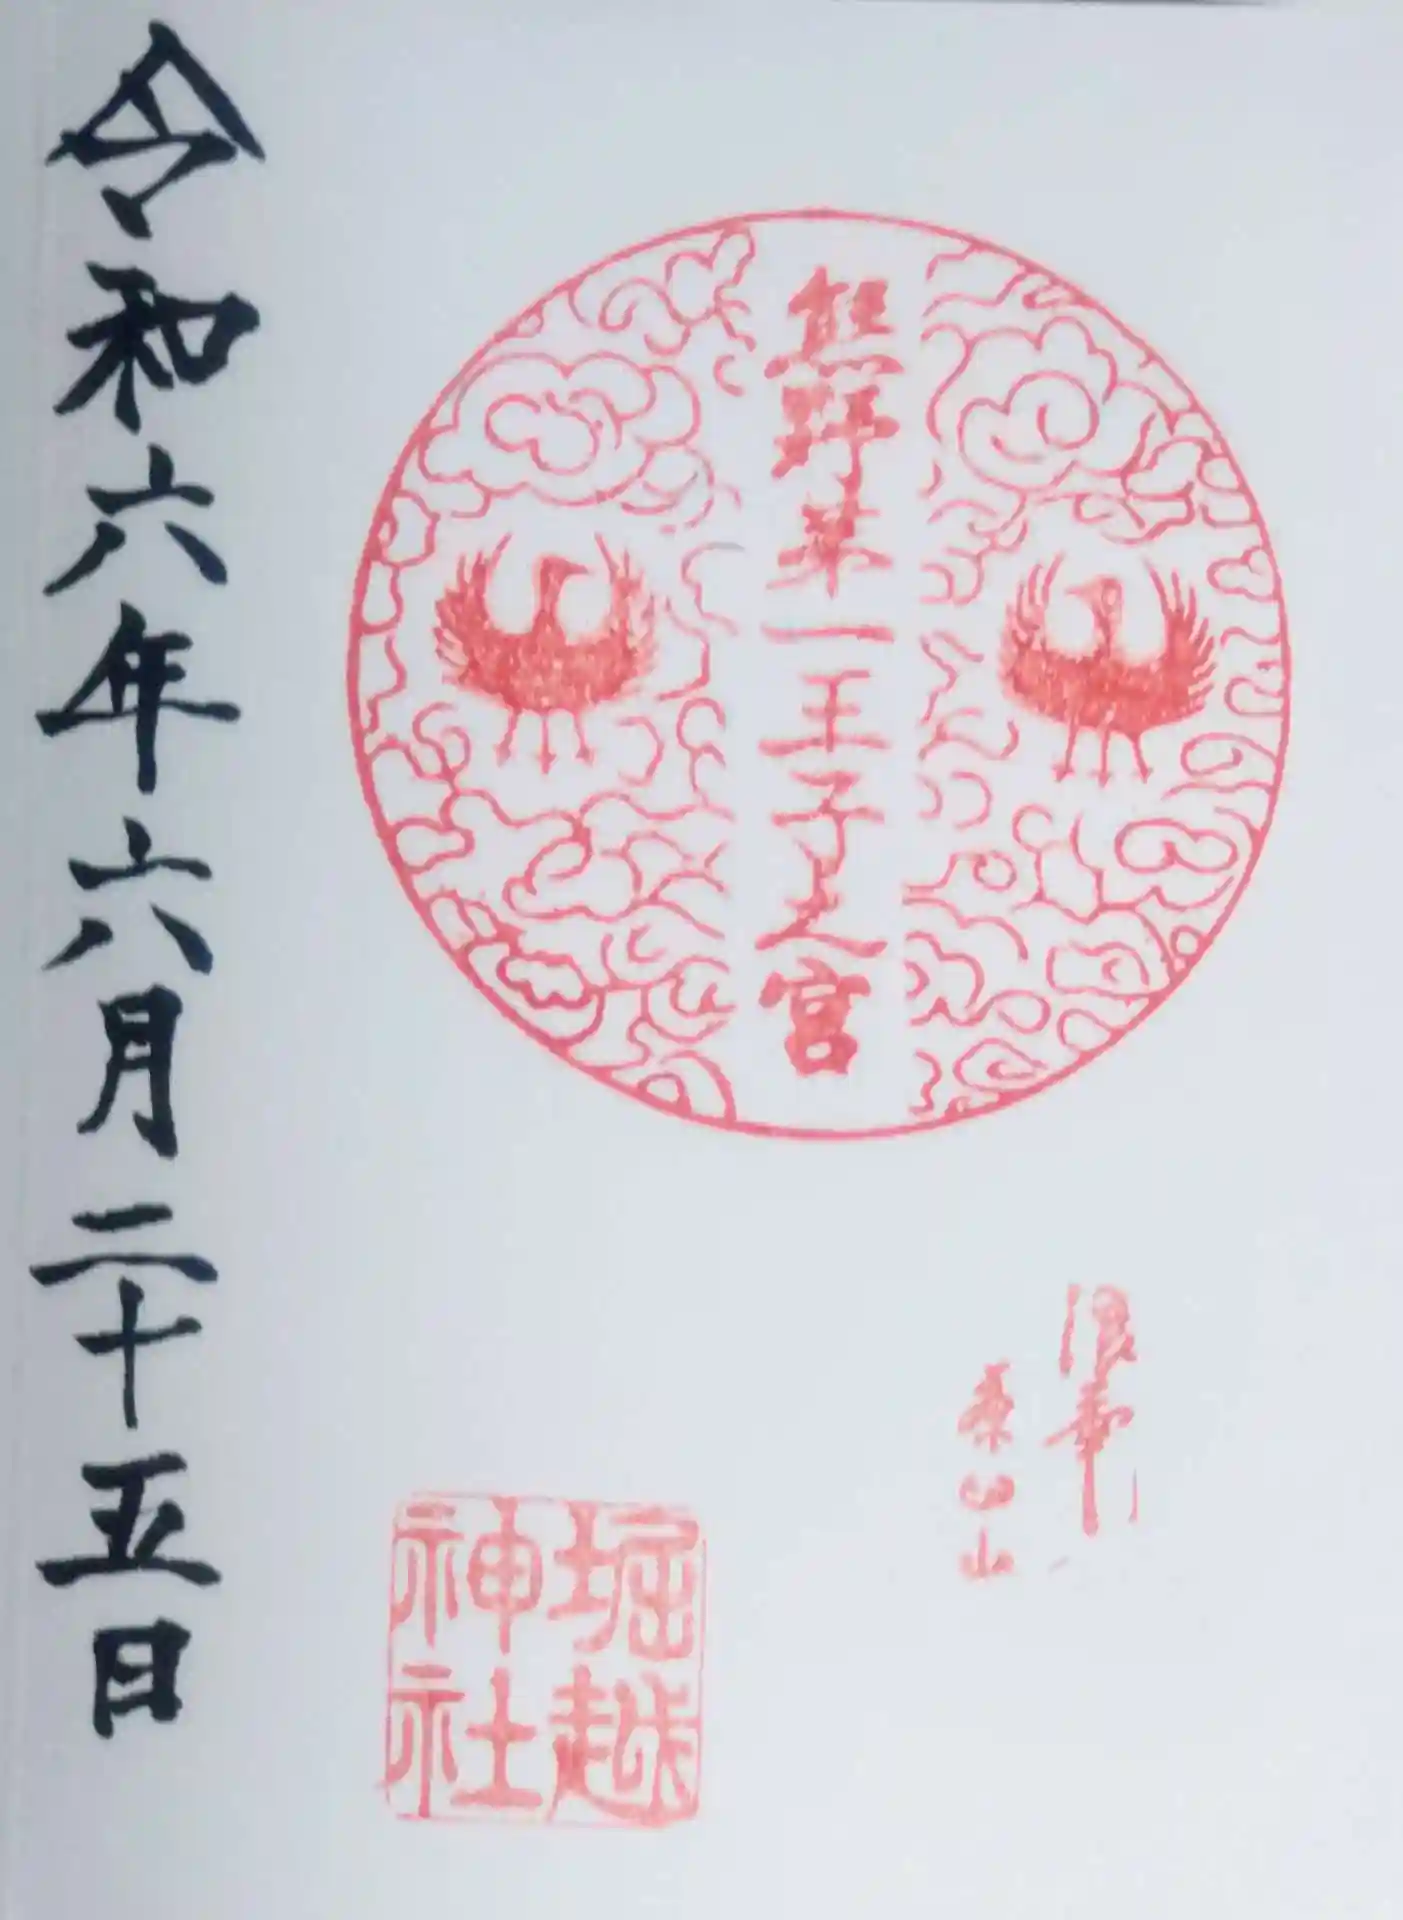 浪華
茶臼山
熊野第一王子之宮
堀越
神社
令和六年六月二十五日